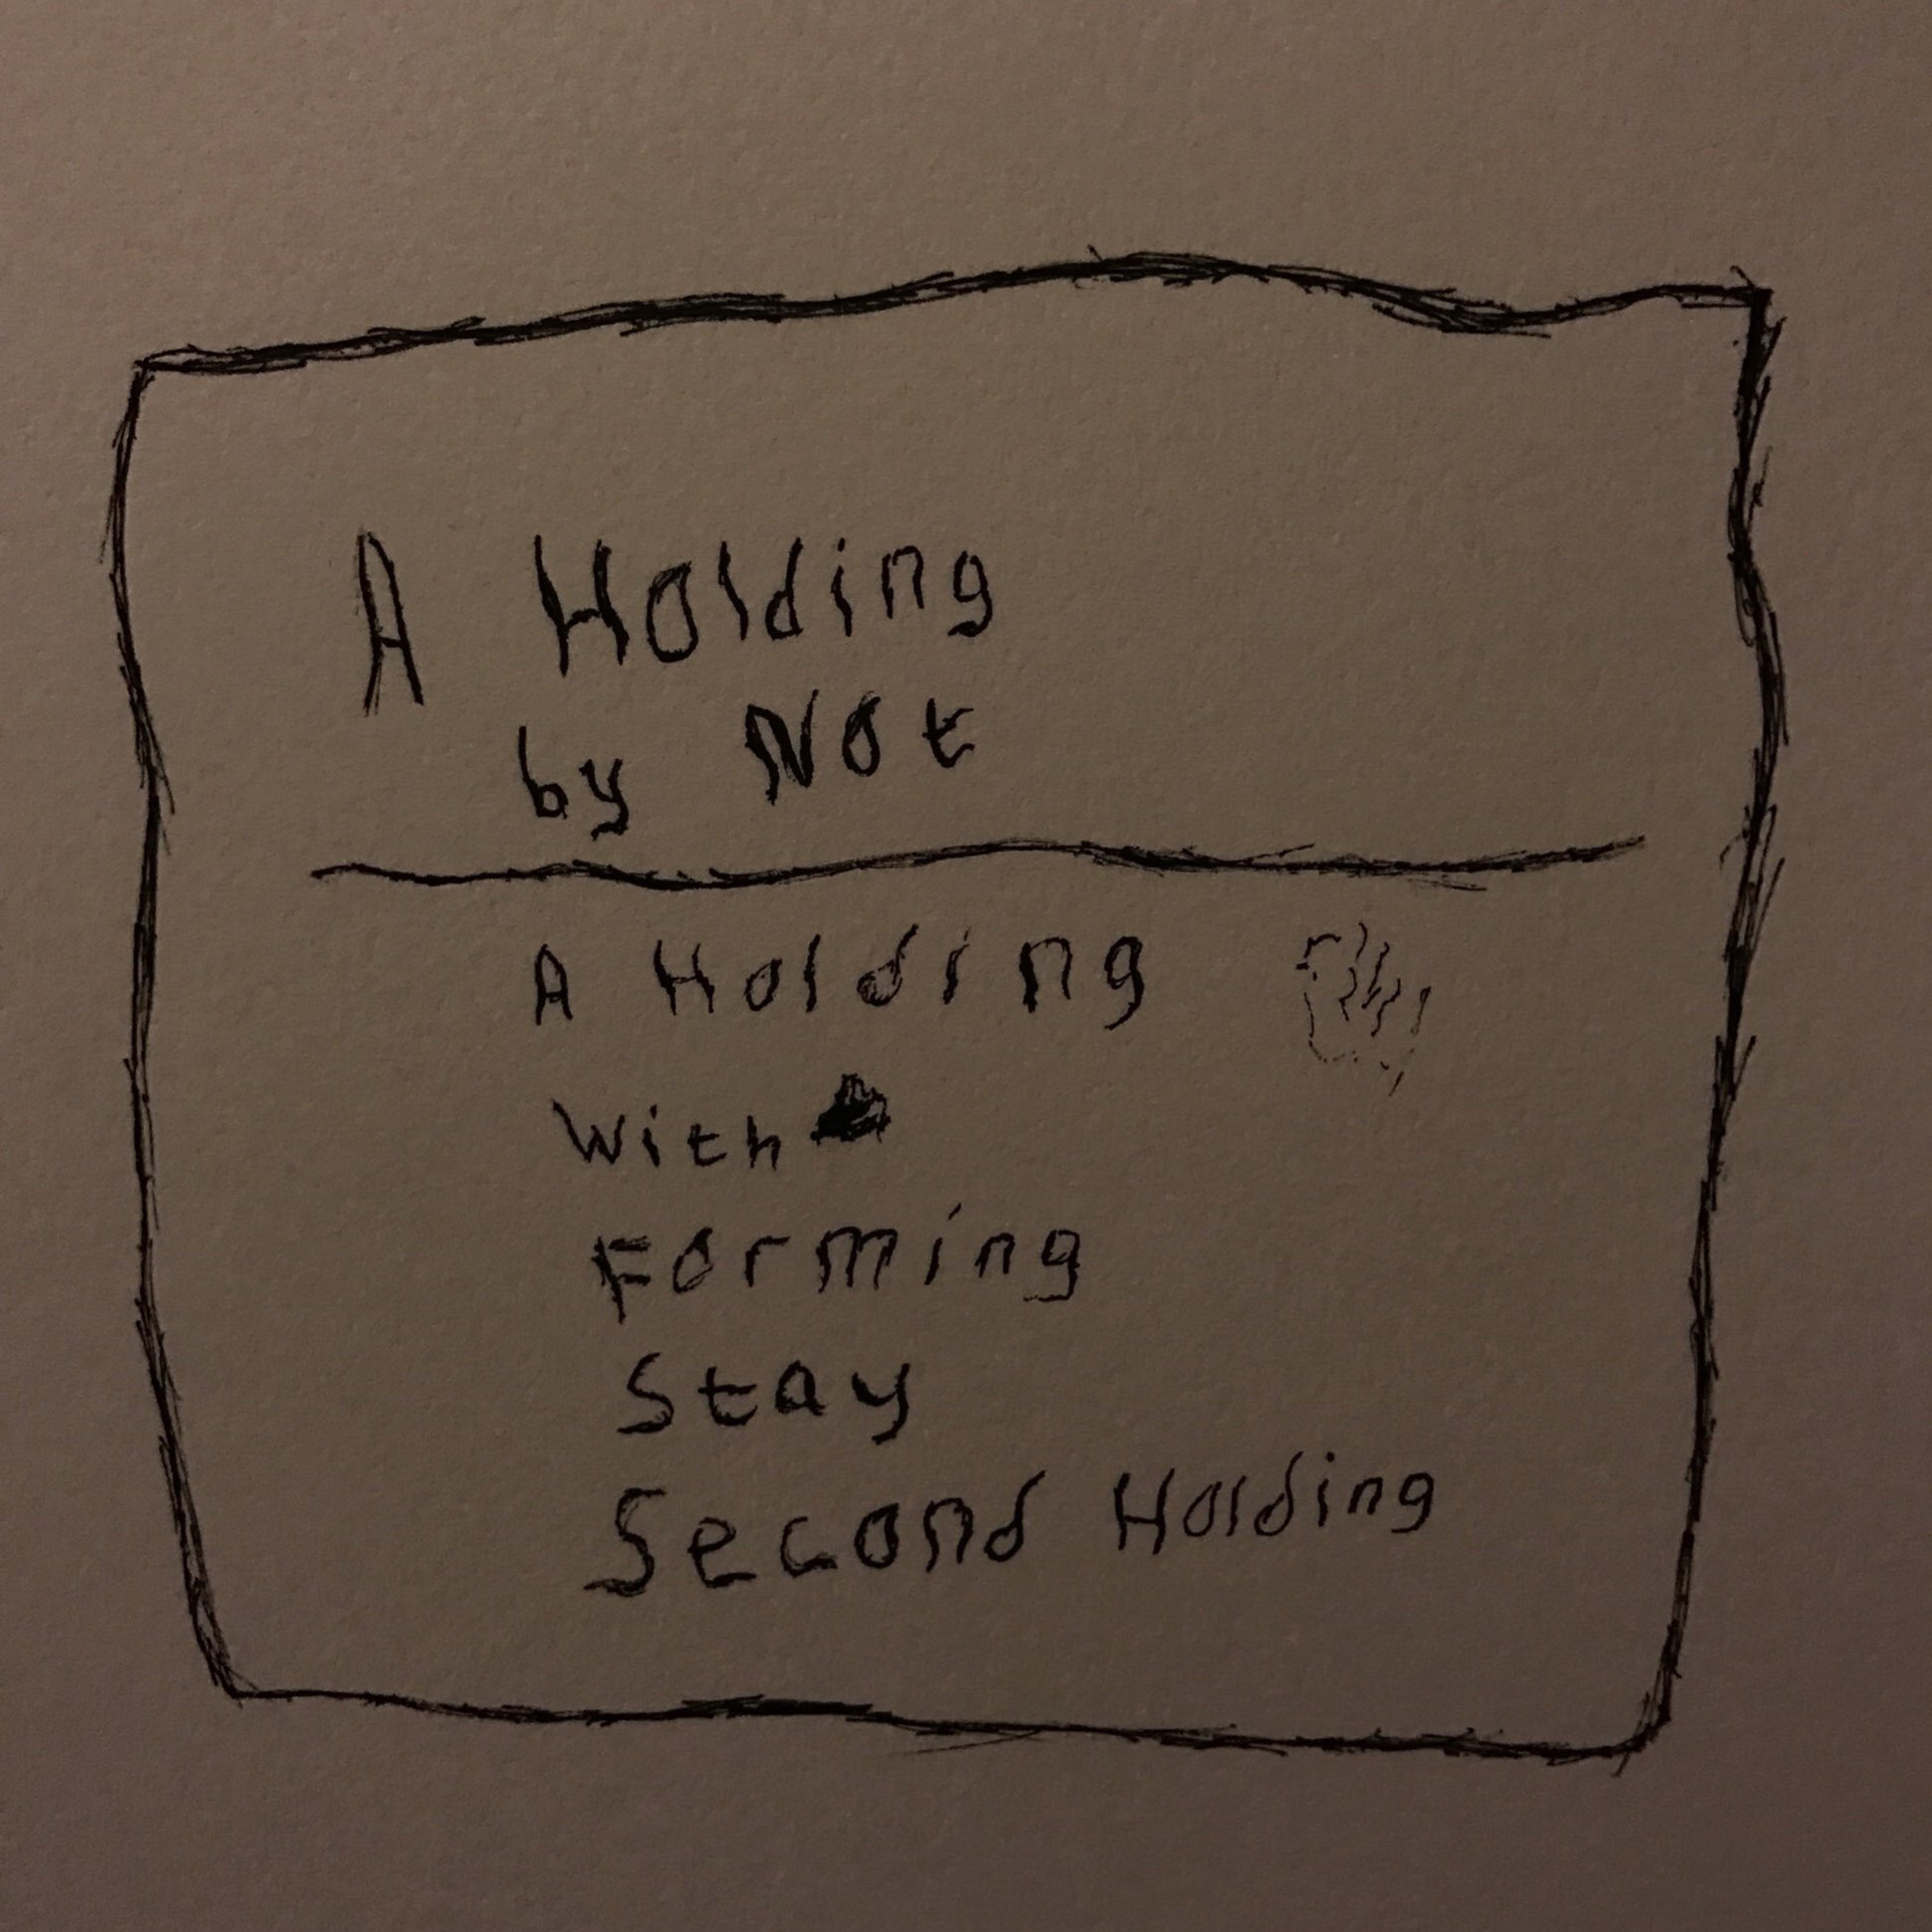 A Holding
by Not
A Holding
With
Forming
Stay
Second Holding